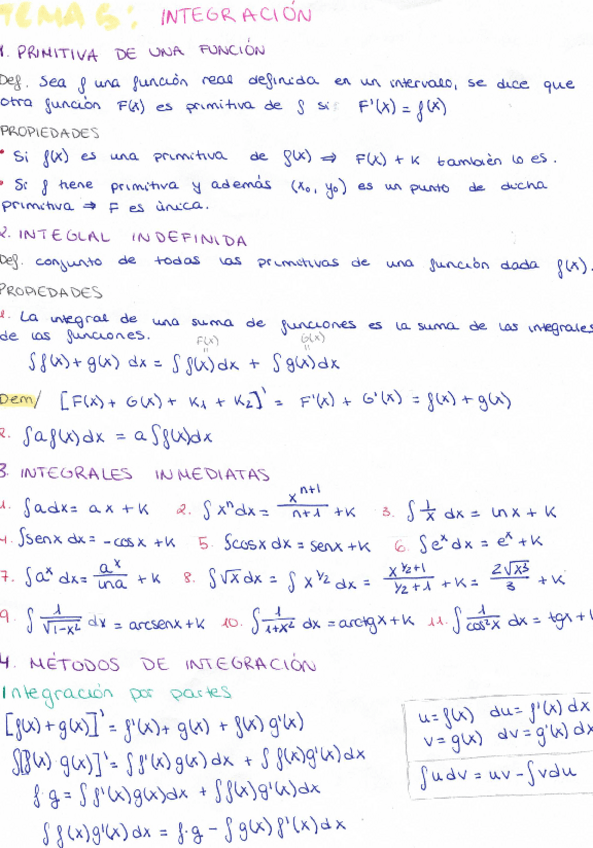 TEMA 5: INTEGRACIÓN
1. PRIMITIVA DE UNA FUNCIÓN
Def. Sea f una función real definida en un intervalo, se dice que
otra función F(x) es primitiva de f si: F'(x) = f(x)
PROPIEDADES
• Si f(x) es una primitiva de f(x) ⇒ F(x) + K también lo es.
• Si f tiene primitiva y además (x₀, y₀) es un punto de dicha
primitiva ⇒ F es única.
2. INTEGLAL INDEFINIDA
Def. conjunto de todas las primitivas de una función dada f(x).
PROPIEDADES
1. La integral de una suma de funciones es la suma de las integrales
de las funciones.
F(x) G(x)
" "
∫f(x) + g(x) dx = ∫f(x)dx + ∫g(x)dx
Dem/ [F(x) + G(x) + K₁ + K₂]' = F'(x) + G'(x) = f(x) + g(x)
2. ∫af(x)dx = a∫f(x)dx
3. INTEGRALES INMEDIATAS
1. ∫adx = ax + K 2. ∫xⁿdx = xⁿ⁺¹/n+1 + K 3. ∫1/x dx = lnx + K
4. ∫senx dx = -cosx + K 5. ∫cosx dx = senx + K 6. ∫eˣdx = eˣ + K
7. ∫aˣdx = aˣ/lna + K 8. ∫√x dx = ∫x^1/2 dx = x^(1/2+1)/(1/2+1) + K = 2√x³/3 + K
9. ∫1/√(1-x²) dx = arcsenx + K 10. ∫1/(1+x²) dx = arctgx + K 11. ∫1/cos²x dx = tgx + K
4. MÉTODOS DE INTEGRACIÓN
Integración por partes
[f(x) + g(x)]' = f'(x) + g(x) + f(x) g'(x)
∫[f(x) · g(x)]' = ∫f'(x) g(x) dx + ∫f(x)g'(x)dx
f·g = ∫f'(x)g(x)dx + ∫f(x)g'(x)dx
∫f(x)g'(x)dx = f·g - ∫g(x) f'(x)dx
u = f(x) du = f'(x) dx
v = g(x) dv = g'(x) dx
∫udv = uv - ∫vdu